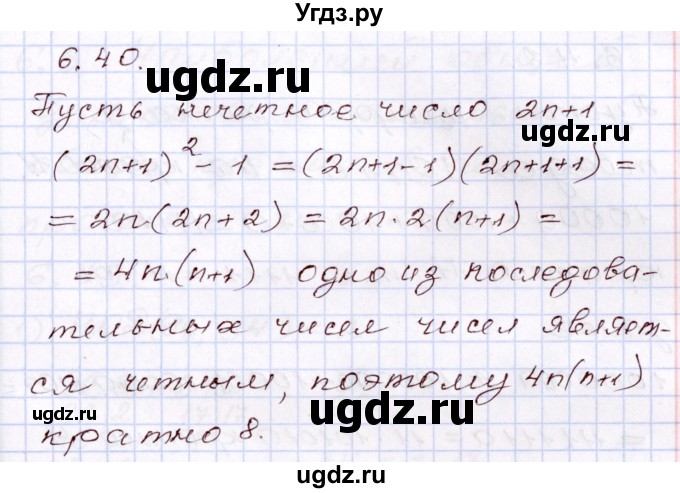 Угдз.ру
6.40.
ugdz.ru
Пусть нечетное число 2n+1
ugdz.ru
(2n+1)² - 1 = (2n+1-1)(2n+1+1) =
= 2n(2n+2) = 2n·2(n+1) =
= 4n(n+1) одно из последова-
тельных чисел чисел являет-
ся четным, поэтому 4n(n+1)
ugdz.ru
ugdz.ru
кратно 8.
ugdz.ru